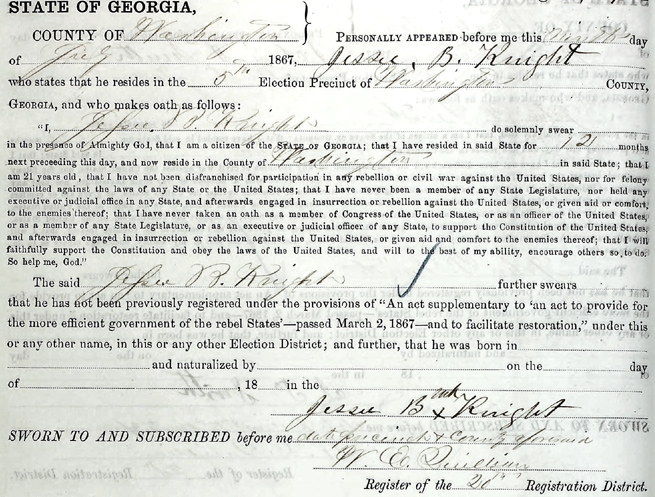 STATE OF GEORGIA,
COUNTY OF Washington } PERSONALLY APPEARED before me this Ninth day
of July 1867, Jessie B. Knight
who states that he resides in the 5th Election Precinct of Washington COUNTY,
GEORGIA, and who makes oath as follows:
"I, Jessie B. Knight do solemnly swear
in the presence of Almighty God, that I am a citizen of the STATE OF GEORGIA; that I have resided in said State for 121 months
next preceding this day, and now reside in the County of Washington in said State; that I
am 21 years old, that I have not been disfranchised for participation in any rebellion or civil war against the United States, nor for felony
committed against the laws of any State or the United States; that I have never been a member of any State Legislature, nor held any
executive or judicial office in any State, and afterwards engaged in insurrection or rebellion against the United States, or given aid or comfort,
to the enemies thereof; that I have never taken an oath as a member of Congress of the United States, or as an officer of the United States,
or as a member of any State Legislature, or as an executive or judicial officer of any State, to support the Constitution of the United States,
and afterwards engaged in insurrection or rebellion against the United States, or given aid and comfort to the enemies thereof; that I will
faithfully support the Constitution and obey the laws of the United States, and will to the best of my ability, encourage others so to do.
So help me, God."
The said Jessie B. Knight further swears
that he has not been previously registered under the provisions of "An act supplementary to 'an act to provide for
the more efficient government of the rebel States'—passed March 2, 1867—and to facilitate restoration," under this
or any other name, in this or any other Election District; and further, that he was born in
and naturalized by on the day
of , 18 in the
Jessie B x Knight
SWORN TO AND SUBSCRIBED before me date precinct & County aforesaid
Register of the 20th Registration District.